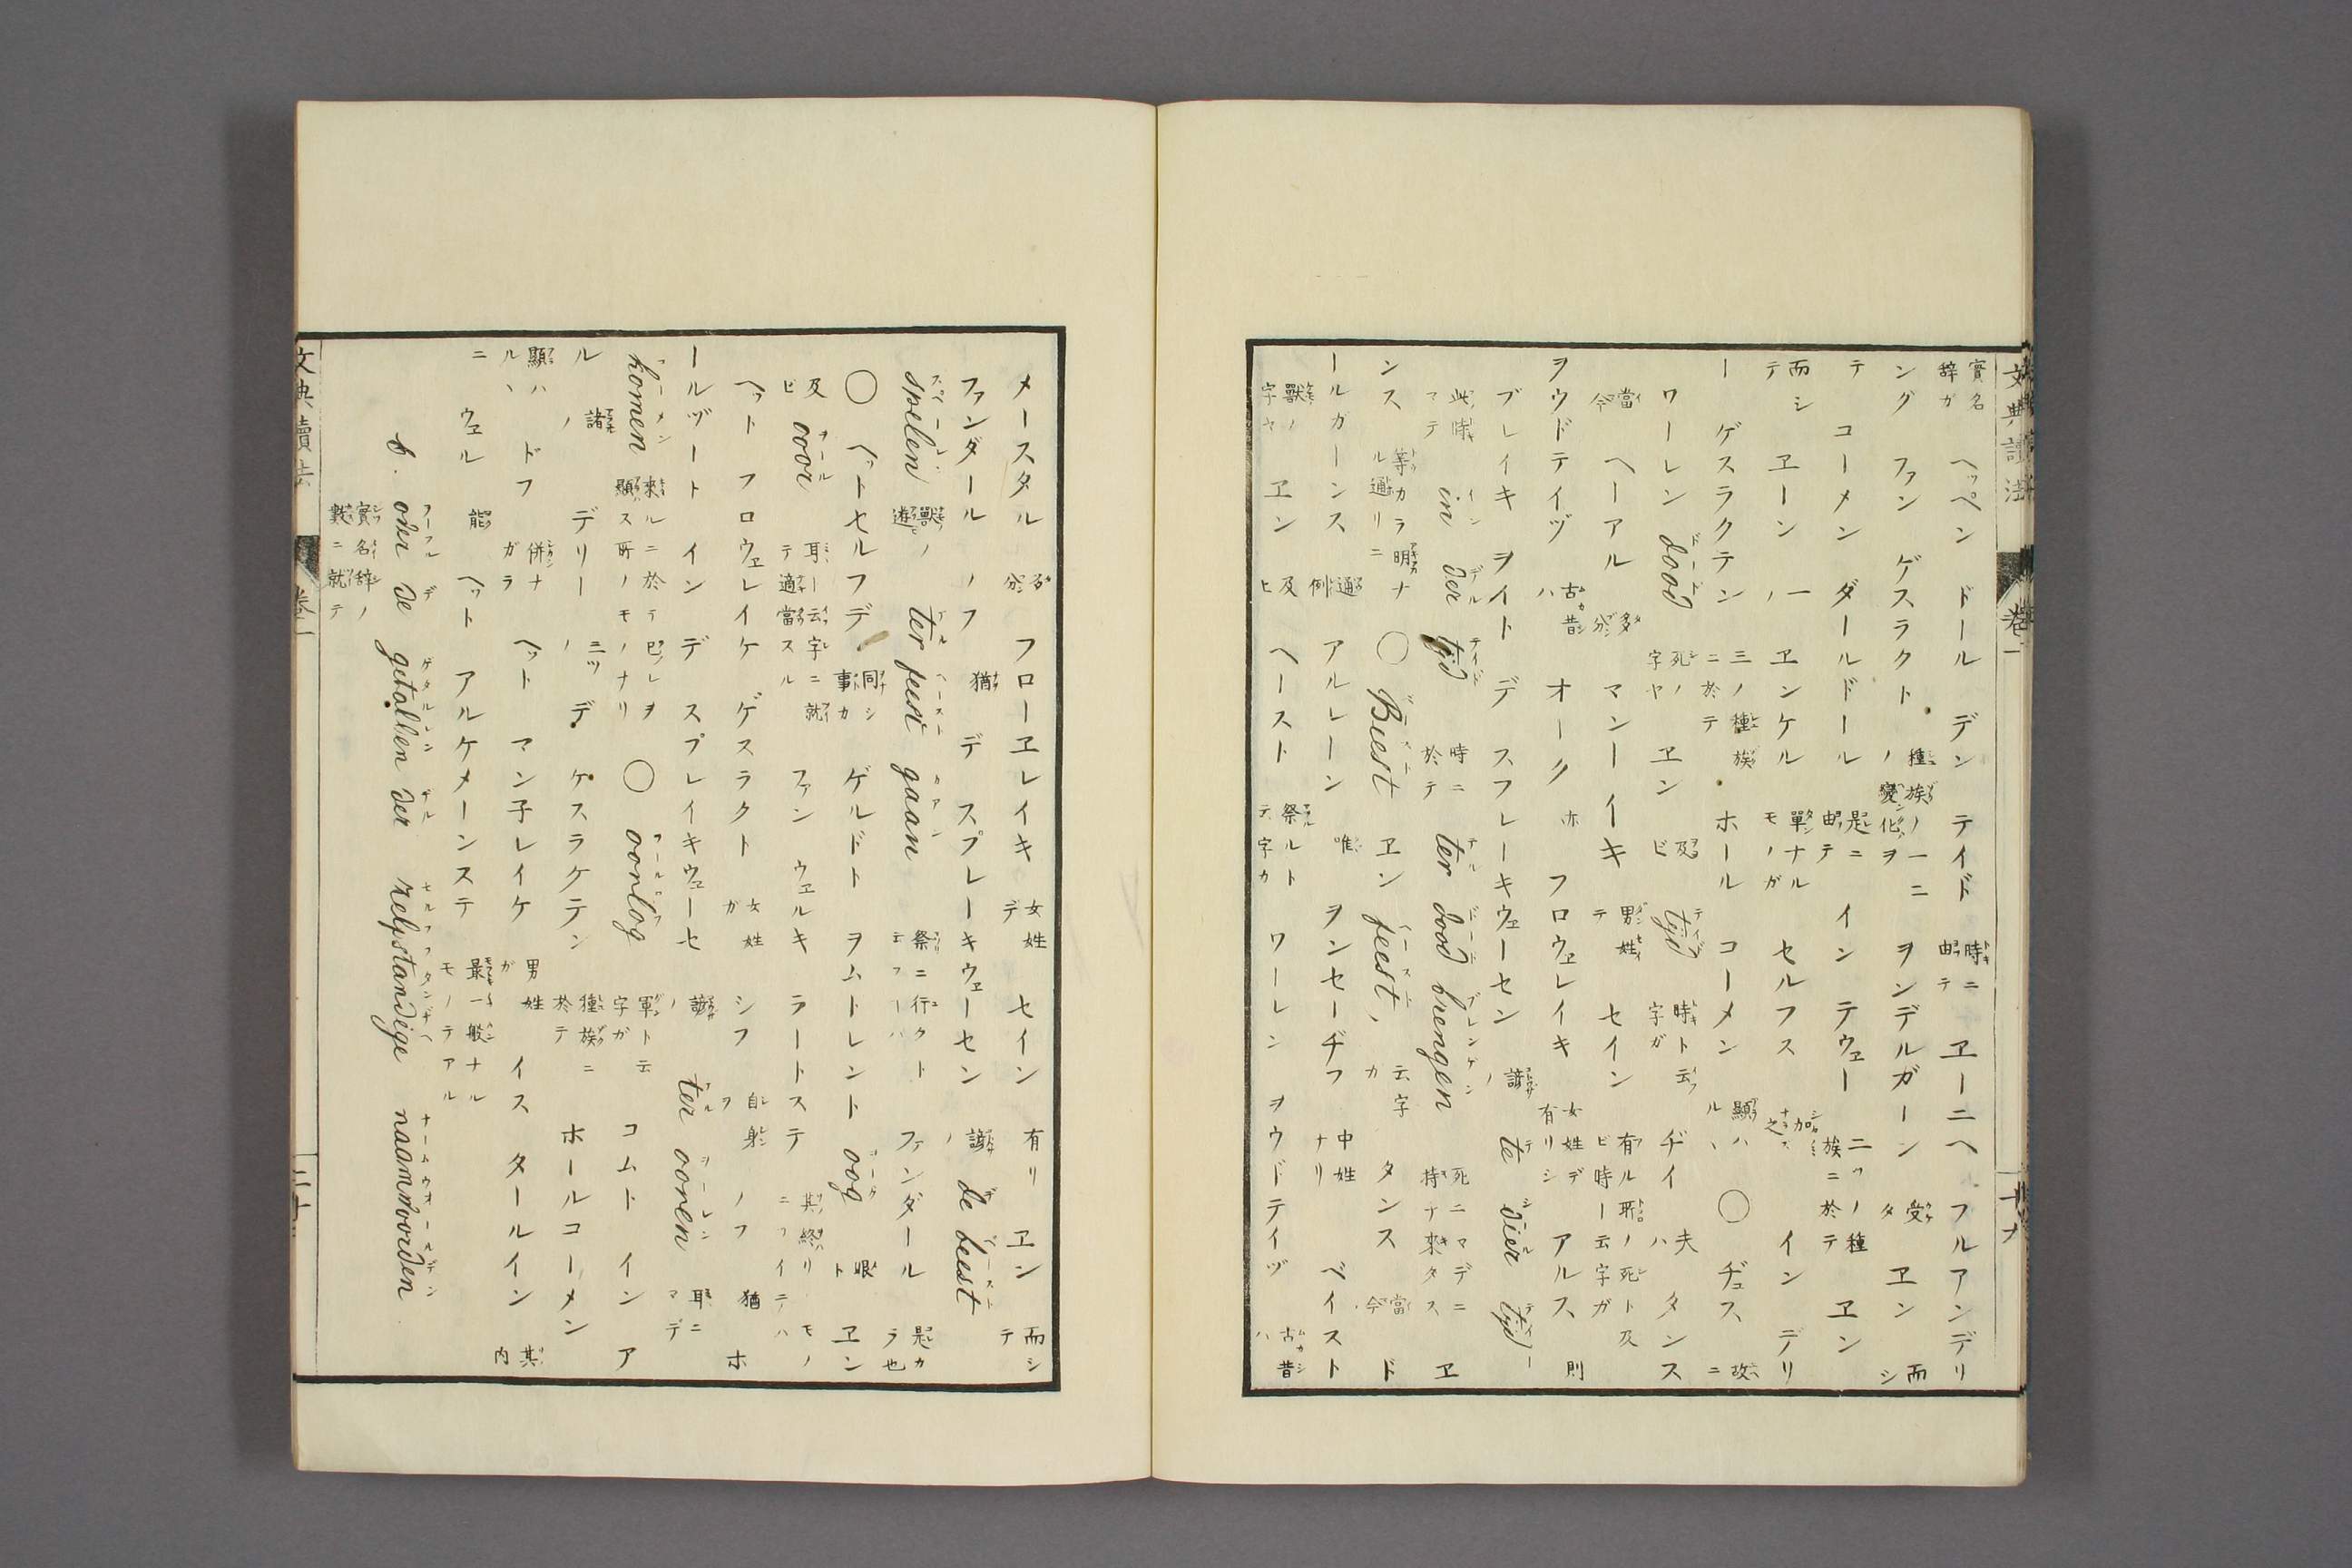 文典讀法 卷一 十九
實名辞ガ ヘッペン ドール デン テイド 時ニ由テ ヱーニヘ フルアンデリ
ング ファン ゲスラクト 種族ノ變化ノ一ニヲ ヲンデルガーン 受タ ヱン 而シ
テ コーメン ダールドール 是ニ由テ イン テウェー 二ツノ種族ニ於テ ヱン
而シテ ヱーン 一ノ ヱンケル 單ナルモノガ セルフス 加之 イン デリ
ー ゲスラクテン 三ノ種族ニ於テ ホール コーメン 顯ハルヽ ◯ ヂュス 故ニ
ワーレン dood 死ノ字ヤ ヱン 及ビ tijd 時ト云字ガ ヂイ 夫ハ タンス
當今 ヘーアル 多分 マンーイキ 男姓テ セイン 有ル所ノ死ト及ビ時ー云字ガ
ヲウドテイヅ 古昔ハ オーク 亦 フロウヱレイキ 女姓デ有リシ アルス 則
ブレイキ ヲイト デ スフレーキウェーセン 諺ノ te dier tijd ー
此時マテ in der tijd 時ニ於テ ter dood brengen 死ニマデニ持ナ來タス ヱ
ンス 等カラ明ナル通リニ ◯ Beest ヱン feest, 云字カ タンス 當今 ド
ールガーンス 通例 アルレーン 唯 ヲンセーヂフ 中姓ナリ ベイスト
獸ノ字ヤ ヱン 及ヒ ヘースト 祭ルトテ字カ ワーレン ヲウドテイヅ 古昔ハ
メースタル 多分 フローヱレイキ 女姓デ セイン 有リ ヱン 而シテ
ファンダール ノフ 猶 デ スプレーキウェーセン 諺ノ de beest
spelen 獸ノ遊 ter feest gaan 祭ニ行クト云フーハ ファンダール 是カラ也
◯ ヘットセルフデ 同シ事カ ゲルドト ヲムトレント oog 眼ト ヱン
及ビ oor 耳ー云字ニ就テ適當スル ファン ウェルキ ラートステ 其終リニフイテハモノ
ヘット フロウェレイケ ゲスラクト 女姓ガ シフ 自身ヲ ノフ 猶 ホ
ールヅート イン デ スプレイキウェーセ 諺ノ ter ooren 耳ニマデ
komen 來ルニ於テ巳レヲ顯ス所ノモノナリ ◯ oorlog 軍ト云字ガ コムト イン ア
ル 諸ノ デリー 三ツノ デ ケスラクテン 種族ニ於テ ホールコーメン
顯ハルヽ ドフ 併ナガラ ヘット マン子レイケ 男姓ガ イス タールイン 其内
ニ ウェル 能 ヘット アルケメーンステ 最一般ナルモノテアル
b. over de getallen der zelfstandige naamwoorden
實名辞ノ數ニ就テ
文典讀法 卷一 二十